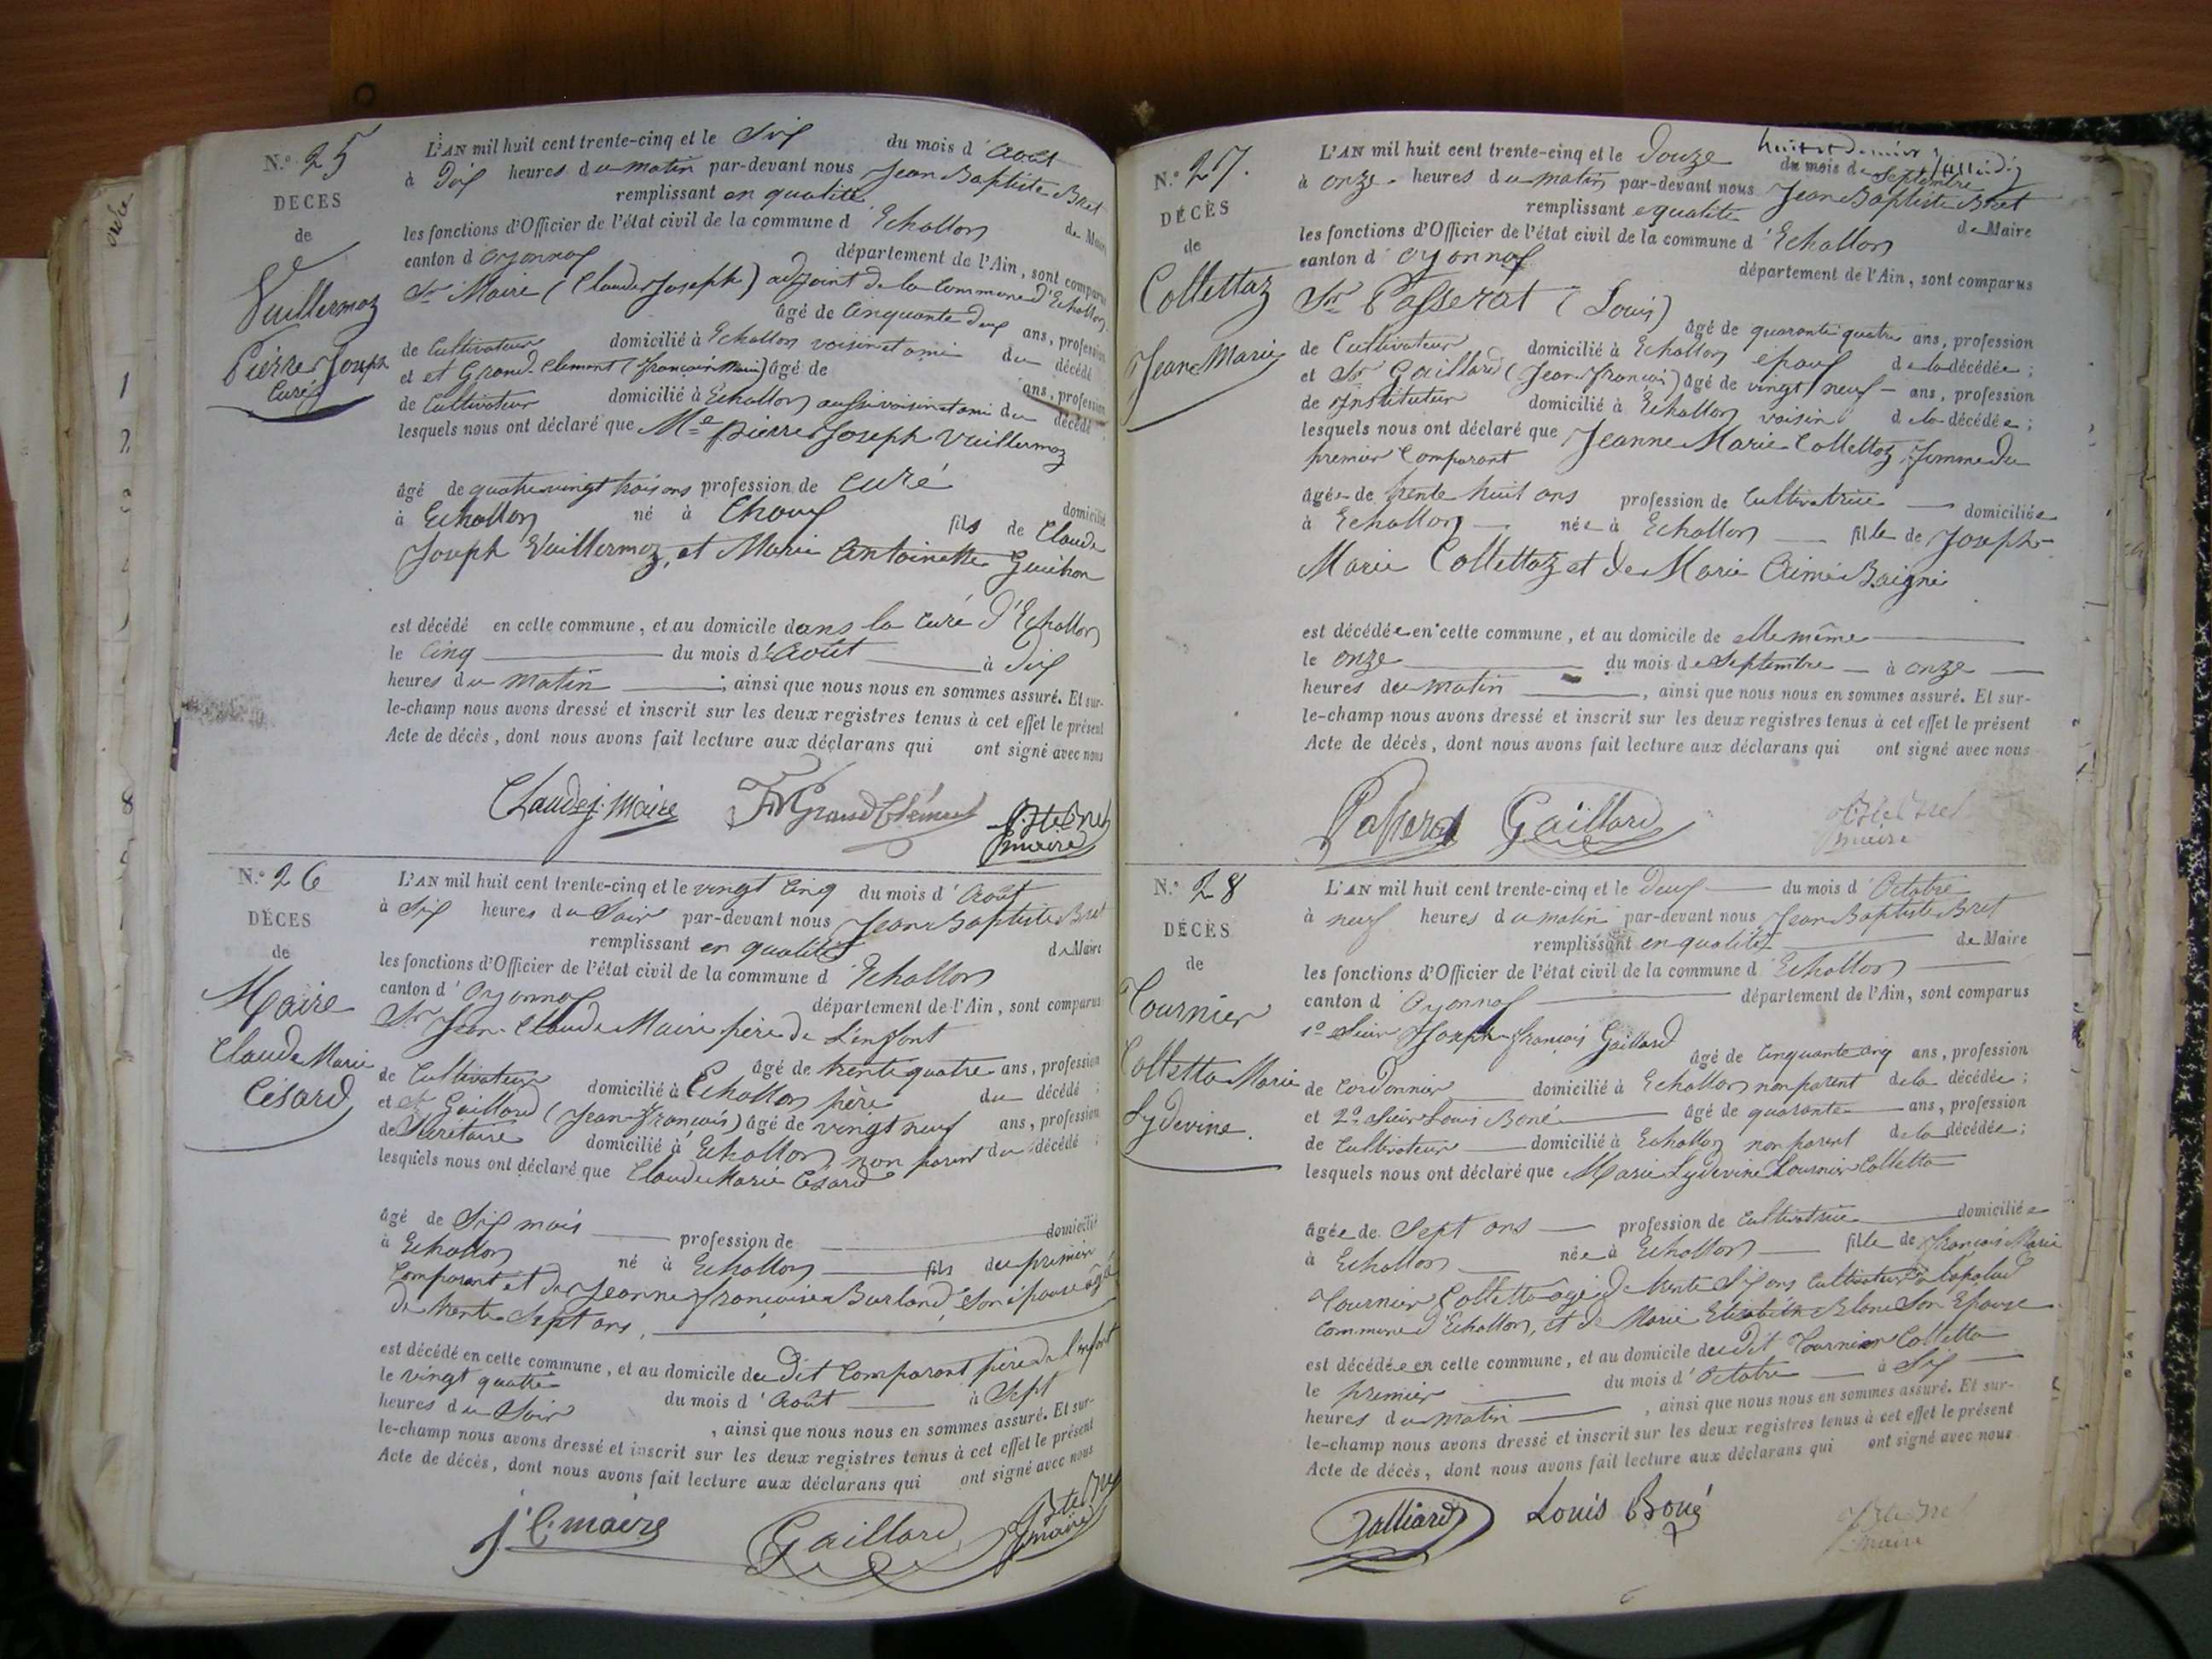 N.° 25
DÉCES
de
Vuillermoz
Pierre Joseph
Curé
L'AN mil huit cent trente-cinq et le Six du mois d'Août
à Dix heures du matin par-devant nous Jean Baptiste Bret
remplissant en qualité de Maire
les fonctions d'Officier de l'état civil de la commune d'Echallon
canton d'oyonnax département de l'Ain, sont comparus
Sr Maire (Claude Joseph) adjoint de la Commune d'Echallon
âgé de Cinquante deux ans, profession
de Cultivateur domicilié à Echallon voisin et ami du décédé
et et Grand Clement (François Marie) âgé de ans, profession
de Cultivateur domicilié à Echallon aussi voisin et ami du décédé
lesquels nous ont déclaré que Me pierre Joseph Vuillermoz
âgé de quatre vingt trois ans profession de curé domicilié
à Echallon né à Choux fils de Claude
Joseph Vuillermoz, et Marie Antoinette
est décédé en cette commune, et au domicile dans la Curé d'Echallon
le Cinq du mois d'Août à Dix
heures du matin ; ainsi que nous nous en sommes assuré. Et sur-
le-champ nous avons dressé et inscrit sur les deux registres tenus à cet effet le présent
Acte de décès, dont nous avons fait lecture aux déclarans qui ont signé avec nous
Claude j. Maire FM Grand Clément Bte Bret
maire
N.° 26
DÉCES
de
Maire
Claude Marie
Césard
L'AN mil huit cent trente-cinq et le vingt Cinq du mois d'Août
à Six heures du Soir par-devant nous Jean Baptiste Bret
remplissant en qualité de Maire
les fonctions d'Officier de l'état civil de la commune d'Echallon
canton d'Oyonnax département de l'Ain, sont comparus
Sr Jean Claude Maire père de L'enfant
âgé de trente quatre ans, profession
de Cultivateur domicilié à Echallon père du décédé ;
et Sr Gaillard (Jean-François) âgé de vingt neuf ans, profession
de Secretaire domicilié à Echallon non parent du décédé ;
lesquels nous ont déclaré que Claude Marie Césard
âgé de Six mois profession de domicilié
à Echallon né à Echallon fils du premier
Comparant et de Jeanne Françoise Burland Son épouse âgé
de trente Sept ans,
est décédé en cette commune, et au domicile du Dit Comparant père de l'enfant
le vingt quatre du mois d'Août à Sept
heures du Soir , ainsi que nous nous en sommes assuré. Et sur-
le-champ nous avons dressé et inscrit sur les deux registres tenus à cet effet le présent
Acte de décès, dont nous avons fait lecture aux déclarans qui ont signé avec nous
J. C. maire Gaillard Bte Bret
maire
N.° 27.
DÉCÈS
de
Collettaz
Jeanne Marie
L'AN mil huit cent trente-cinq et le Douze du mois de Septembre
à onze heures du matin par-devant nous Jean Baptiste Bret
remplissant e qualité de Maire
les fonctions d'Officier de l'état civil de la commune d'Echallon
canton d'oyonnax département de l'Ain, sont comparus
Sr Passerat (Louis)
âgé de quarante quatre ans, profession
de Cultivateur domicilié à Echallon epoux de la décédée ;
et Sr Gaillard (Jean François) âgé de vingt neuf ans, profession
de Instituteur domicilié à Echallon voisin de la décédée ;
lesquels nous ont déclaré que Jeanne Marie Collettaz, femme du
premier Comparant
âgée de trente huit ans profession de Cultivatrice domiciliée
à Echallon née à Echallon fille de Joseph
Marie Collettaz et de Marie Aimé Baigné
est décédée en cette commune, et au domicile de elle même
le onze du mois de Septembre à onze
heures du matin , ainsi que nous nous en sommes assuré. Et sur-
le-champ nous avons dressé et inscrit sur les deux registres tenus à cet effet le présent
Acte de décès, dont nous avons fait lecture aux déclarans qui ont signé avec nous
Passerat Gaillard Bte Bret
maire
N.° 28
DÉCÈS
de
Tournier
Colletta Marie
Lydevine.
L'AN mil huit cent trente-cinq et le Deux du mois d'Octobre
à neuf heures du matin par-devant nous Jean Baptiste Bret
remplissant en qualité de Maire
les fonctions d'Officier de l'état civil de la commune d'Echallon
canton d'Oyonnax département de l'Ain, sont comparus
1° Sieur Joseph-françois Gaillard
âgé de Cinquante cinq ans, profession
de Cordonnier domicilié à Echallon non parent de la décédée ;
et 2° Sieur Louis Boné âgé de quarante ans, profession
de Cultivateur domicilié à Echallon non parent de la décédée ;
lesquels nous ont déclaré que Marie Lydevine Tournier Colletta
âgée de Sept ans profession de Cultivatrice domiciliée
à Echallon née à Echallon fille de François Marie
Tournier Colletta âgé de trente Six ans Cultivateur à
Commune d'Echallon, et de Marie Elisabeth Blanc Son Epouse
est décédée en cette commune, et au domicile du dit Tournier Colletta
le premier du mois d'Octobre à Six
heures du matin , ainsi que nous nous en sommes assuré. Et sur-
le-champ nous avons dressé et inscrit sur les deux registres tenus à cet effet le présent
Acte de décès, dont nous avons fait lecture aux déclarans qui ont signé avec nous
Galliard Louis Boné Bte Bret
maire